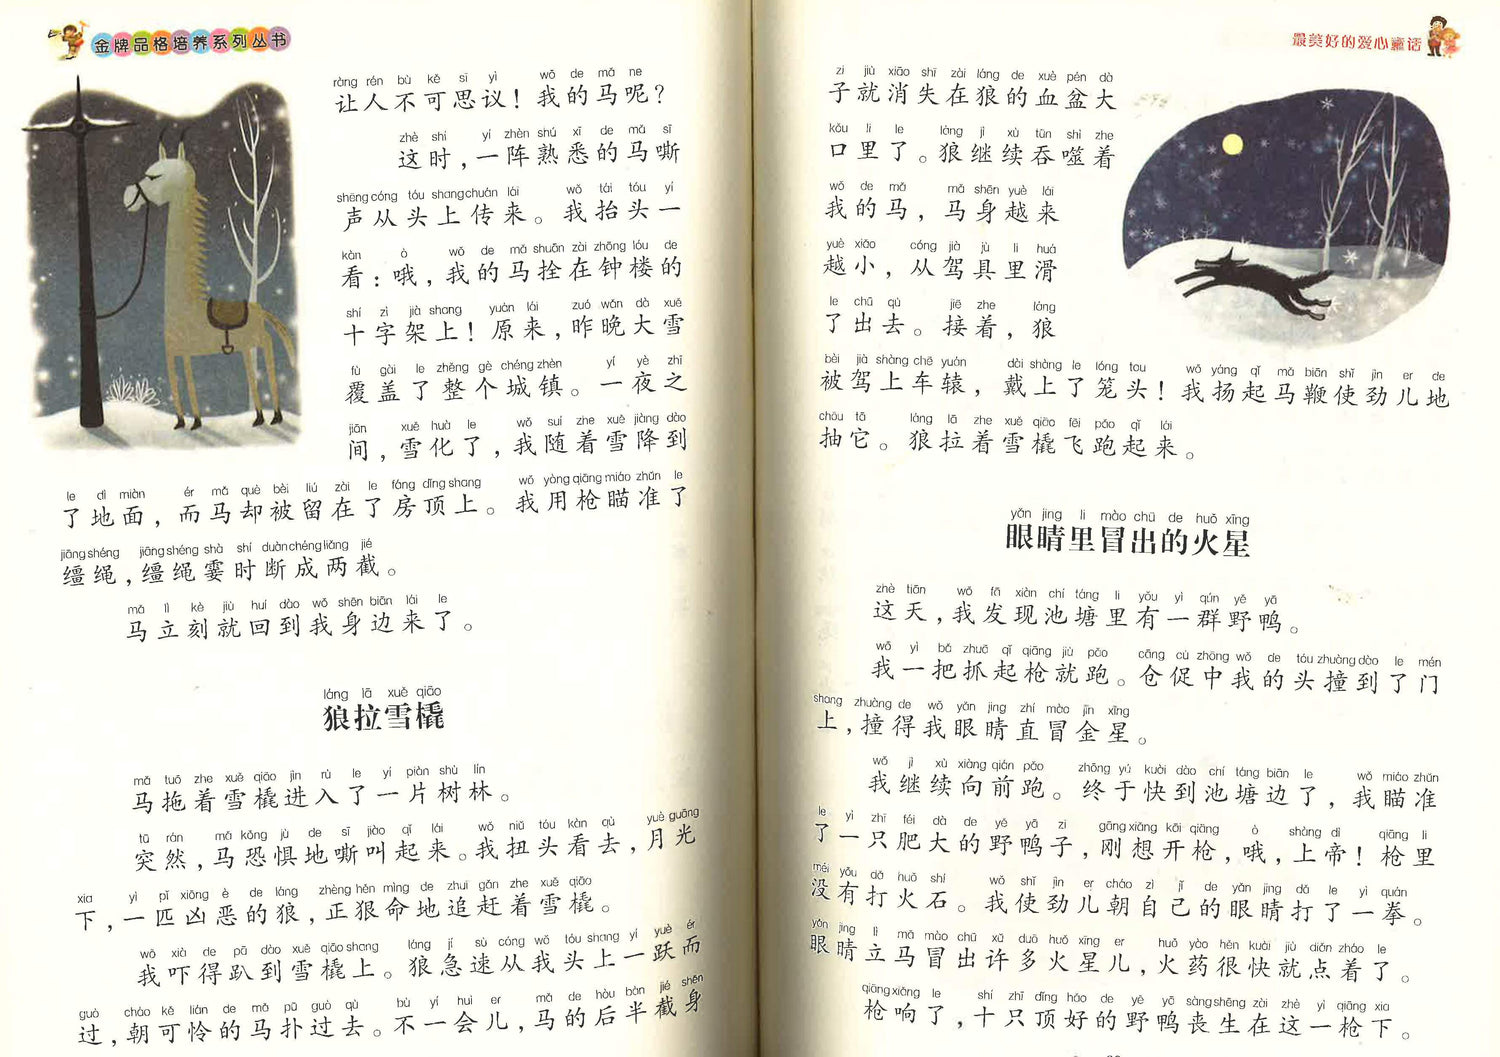 金牌品格培养系列丛书
ràng rén bù kě sī yì wǒ de mǎ ne
让人不可思议！我的马呢？
zhè shí yí zhèn shú xī de mǎ sī
这时，一阵熟悉的马嘶
shēng cóng tóu shang chuán lái wǒ tái tóu yí
声从头上传来。我抬头一
kàn ò wǒ de mǎ shuān zài zhōng lóu de
看：哦，我的马拴在钟楼的
shí zì jià shang yuán lái zuó wǎn dà xuě
十字架上！原来，昨晚大雪
fù gài le zhěng gè chéng zhèn yí yè zhī
覆盖了整个城镇。一夜之
jiān xuě huà le wǒ suí zhe xuě jiàng dào
间，雪化了，我随着雪降到
le dì miàn ér mǎ què bèi liú zài le fáng dǐng shang wǒ yòng qiāng miáo zhǔn le
了地面，而马却被留在了房顶上。我用枪瞄准了
jiāng shéng jiāng shéng shà shí duàn chéng liǎng jié
缰绳，缰绳霎时断成两截。
mǎ lì kè jiù huí dào wǒ shēn biān lái le
马立刻就回到我身边来了。
láng lā xuě qiāo
狼拉雪橇
mǎ tuō zhe xuě qiāo jìn rù le yí piàn shù lín
马拖着雪橇进入了一片树林。
tū rán mǎ kǒng jù de sī jiào qǐ lái wǒ niǔ tóu kàn qù yuè guāng
突然，马恐惧地嘶叫起来。我扭头看去，月光
xia yì pǐ xiōng è de láng zhèng hěn mìng de zhuī gǎn zhe xuě qiāo
下，一匹凶恶的狼，正狠命地追赶着雪橇。
wǒ xià de pā dào xuě qiāo shang láng jí sù cóng wǒ tóu shang yí yuè ér
我吓得趴到雪橇上。狼急速从我头上一跃而
guò cháo kě lián de mǎ pū guò qù bù yí huì er mǎ de hòu bàn jié shēn
过，朝可怜的马扑过去。不一会儿，马的后半截身
最美好的爱心童话
zi jiù xiāo shī zài láng de xuè pén dà
子就消失在狼的血盆大
kǒu li le láng jì xù tūn shì zhe
口里了。狼继续吞噬着
wǒ de mǎ mǎ shēn yuè lái
我的马，马身越来
yuè xiǎo cóng jià jù li huá
越小，从驾具里滑
le chū qù jiē zhe láng
了出去。接着，狼
bèi jià shàng chē yuán dài shàng le lóng tou wǒ yáng qǐ mǎ biān shǐ jìn er de
被驾上车辕，戴上了笼头！我扬起马鞭使劲儿地
chōu tā láng lā zhe xuě qiāo fēi pǎo qǐ lái
抽它。狼拉着雪橇飞跑起来。
yǎn jing li mào chū de huǒ xīng
眼睛里冒出的火星
zhè tiān wǒ fā xiàn chí táng li yǒu yì qún yě yā
这天，我发现池塘里有一群野鸭。
wǒ yì bǎ zhuā qǐ qiāng jiù pǎo cāng cù zhōng wǒ de tóu zhuàng dào le mén
我一把抓起枪就跑。仓促中我的头撞到了门
shang zhuàng de wǒ yǎn jing zhí mào jīn xīng
上，撞得我眼睛直冒金星。
wǒ jì xù xiàng qián pǎo zhōng yú kuài dào chí táng biān le wǒ miáo zhǔn
我继续向前跑。终于快到池塘边了，我瞄准
le yì zhī féi dà de yě yā zi gāng xiǎng kāi qiāng ò shàng dì qiāng li
了一只肥大的野鸭子，刚想开枪，哦，上帝！枪里
méi yǒu dǎ huǒ shí wǒ shǐ jìn er cháo zì jǐ de yǎn jing dǎ le yì quán
没有打火石。我使劲儿朝自己的眼睛打了一拳。
yǎn jing lì mǎ mào chū xǔ duō huǒ xīng er huǒ yào hěn kuài jiù diǎn zháo le
眼睛立马冒出许多火星儿，火药很快就点着了。
qiāng xiǎng le shí zhī dǐng hǎo de yě yā sàng shēng zài zhè yì qiāng xia
枪响了，十只顶好的野鸭丧生在这一枪下。